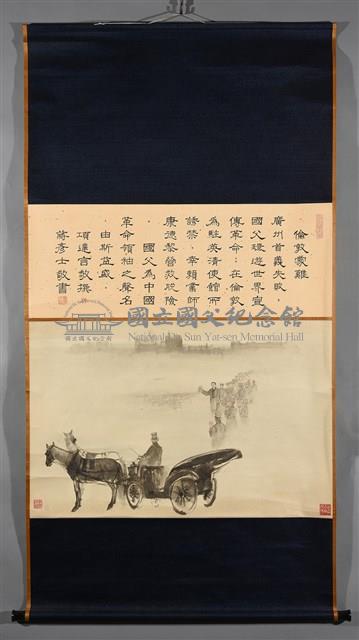 倫敦蒙難
廣州首義失敗,
國父環遊世界宣
傳革命;在倫敦
為駐英清使館所
誘禁,幸賴業師
康德黎營救脫險
。國父為中國
革命領袖之聲名
由斯益盛。
項達言敬撰
蔣彥士敬書
國立國父紀念館
National Dr. Sun Yat-sen Memorial Hall